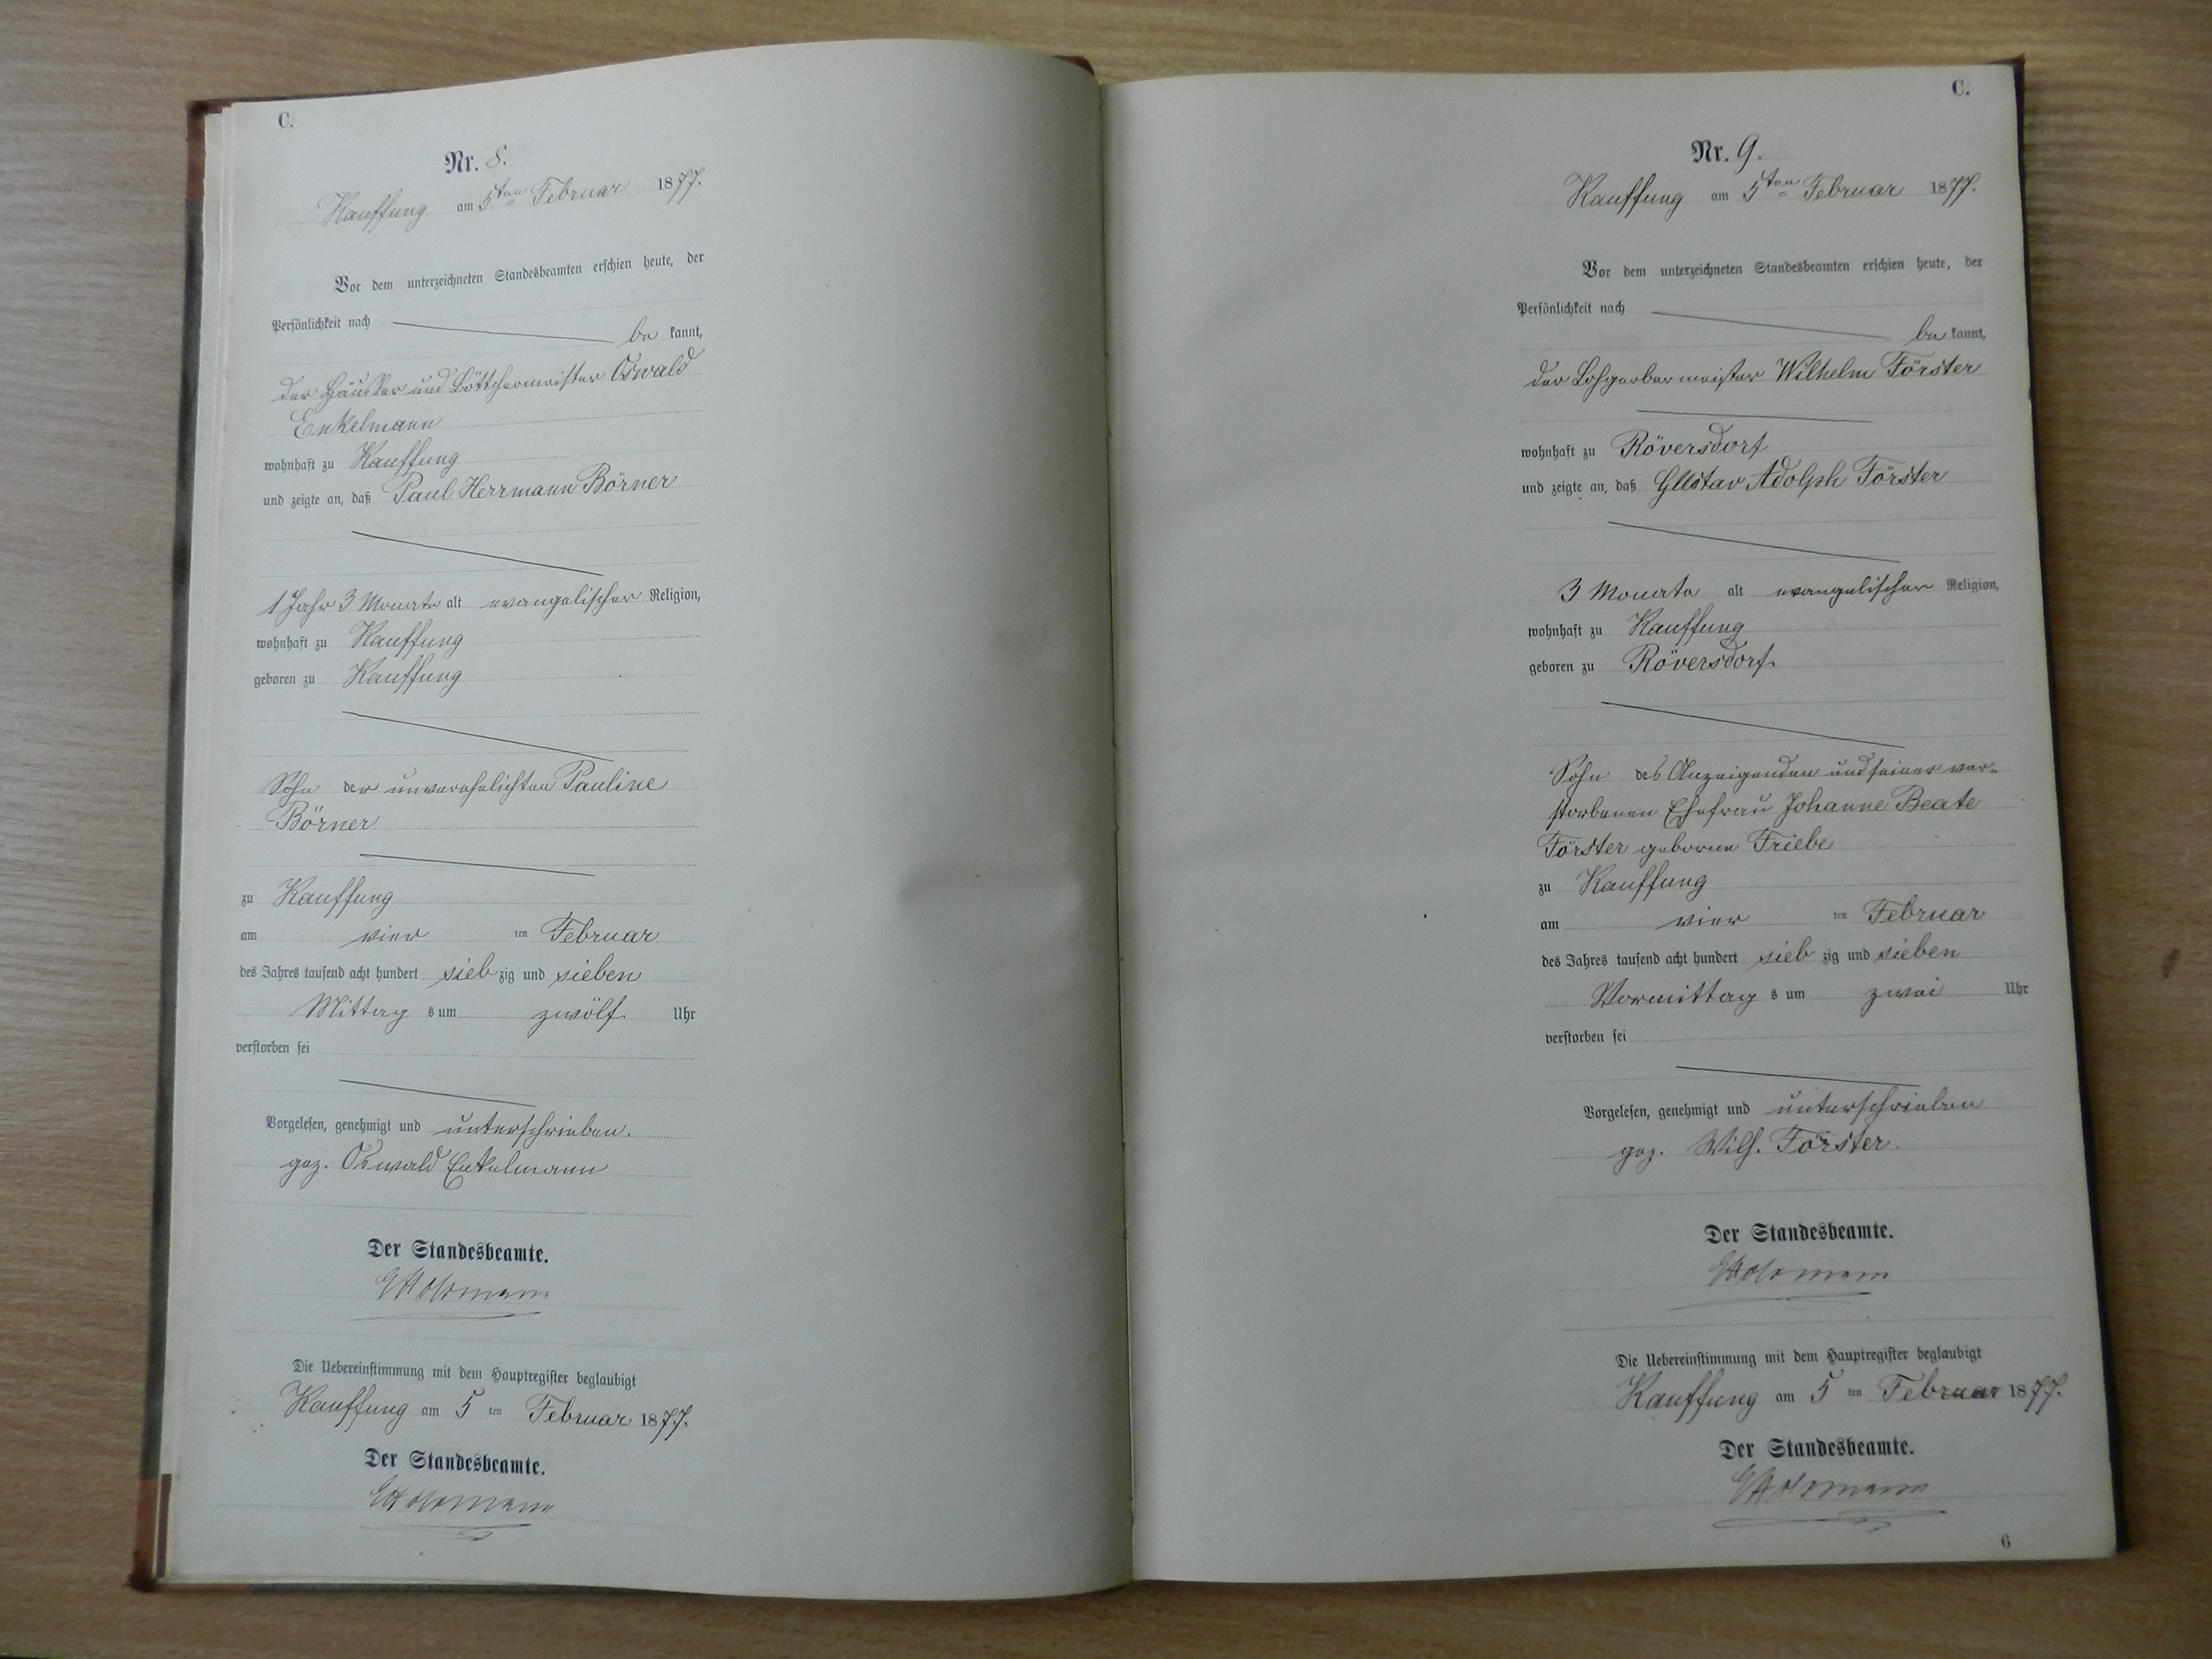 C.
Nr. 8.
Kauffung am 5ten Februar 1877.
Vor dem unterzeichneten Standesbeamten erschien heute, der
Persönlichkeit nach
be kannt,
der Häusler und Böttchermeister Oswald
Enkelmann
wohnhaft zu Kauffung
und zeigte an, daß Paul Herrmann Börner
1 Jahr 3 Monate alt evangelischer Religion,
wohnhaft zu Kauffung
geboren zu Kauffung
Sohn der unverehelichten Pauline
Börner
zu Kauffung
am vier ten Februar
des Jahres tausend acht hundert sieb zig und sieben
Mittag s um zwölf Uhr
verstorben sei
Vorgelesen, genehmigt und unterschrieben.
gez. Oswald Enkelmann
Der Standesbeamte.
Die Uebereinstimmung mit dem Hauptregister beglaubigt
Kauffung am 5 ten Februar 1877.
Der Standesbeamte.
C.
Nr. 9.
Kauffung am 5ten Februar 1877.
Vor dem unterzeichneten Standesbeamten erschien heute, der
Persönlichkeit nach
be kannt,
der Lohgerbermeister Wilhelm Förster
wohnhaft zu Röversdorf
und zeigte an, daß Gustav Adolph Förster
3 Monate alt evangelischer Religion,
wohnhaft zu Kauffung
geboren zu Röversdorf
Sohn des Anzeigenden und seiner ver-
storbenen Ehefrau Johanne Beate
Förster geborne Friebe
zu Kauffung
am vier ten Februar
des Jahres tausend acht hundert sieb zig und sieben
Vormittag s um zwei Uhr
verstorben sei
Vorgelesen, genehmigt und unterschrieben
gez. Wilh. Förster.
Der Standesbeamte.
Die Uebereinstimmung mit dem Hauptregister beglaubigt
Kauffung am 5 ten Februar 1877.
Der Standesbeamte.
6